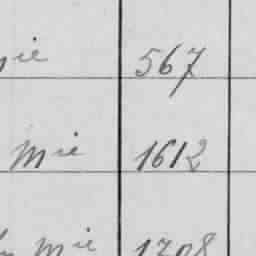 ie 567
Mie 1612
Mie 1708